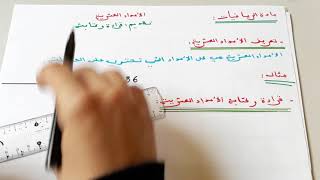 مادة الرياضيات:
الأعداد العشرية
تقديم، قراءة وكتابة
- تعريف الأعداد العشرية:
الأعداد العشرية هي من الأعداد التي تحتوي على
مثال:
36
- قراءة وكتابة الأعداد العشرية: